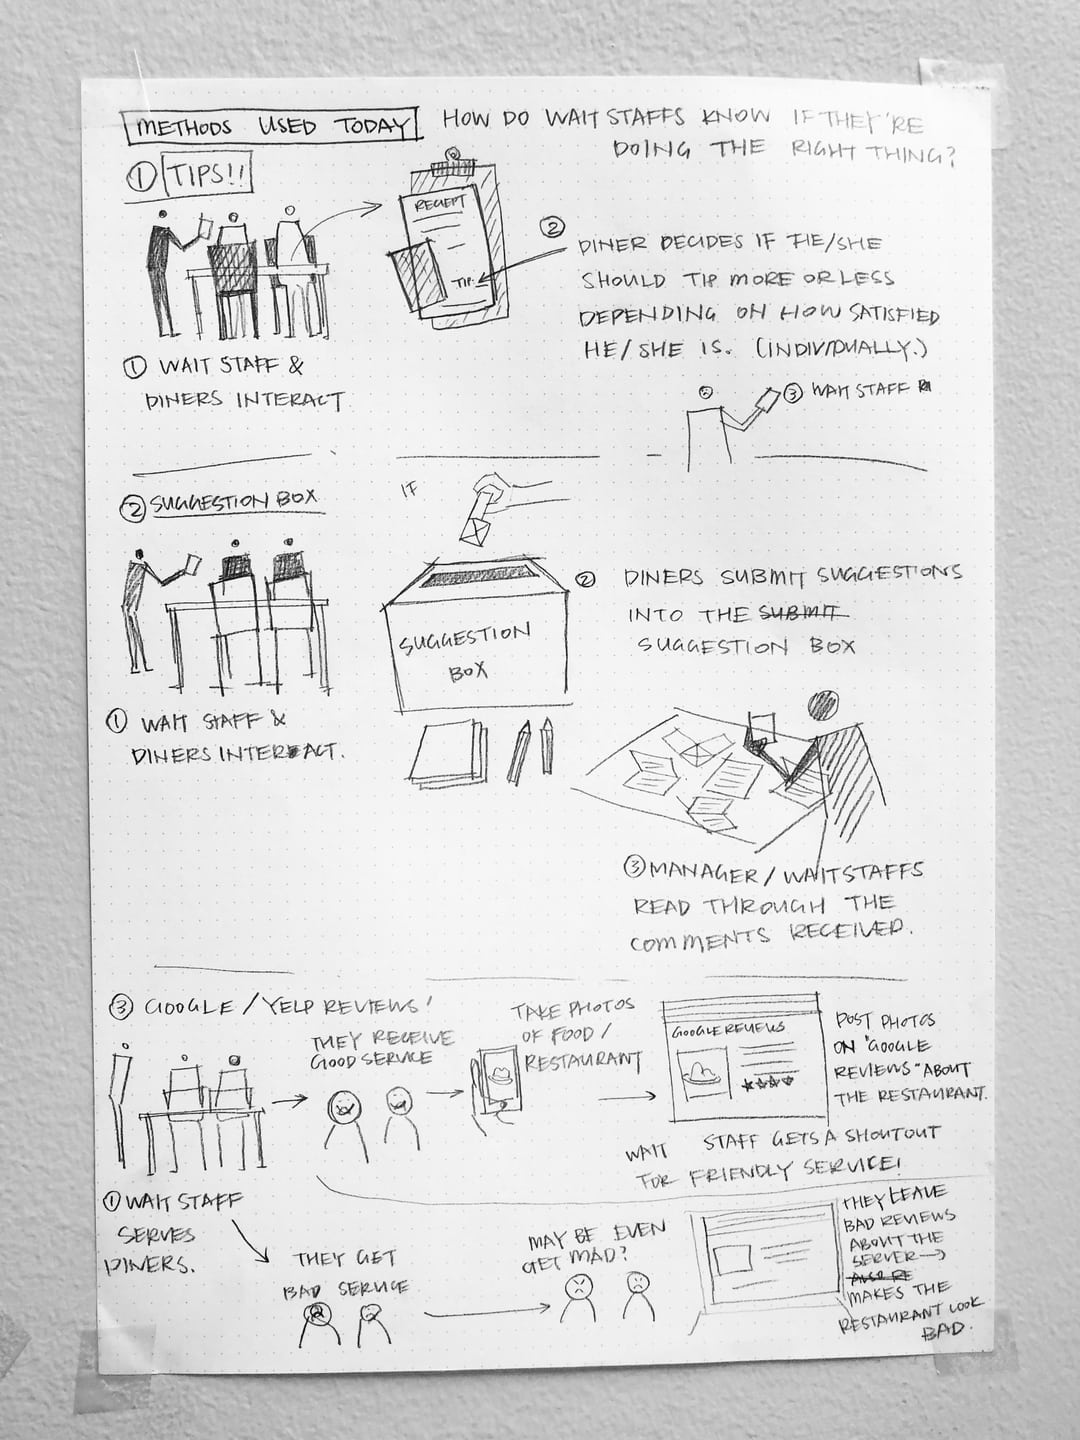 METHODS USED TODAY
HOW DO WAIT STAFFS KNOW IF THEY'RE
DOING THE RIGHT THING?
① TIPS!!
RECEIPT
TIP:
① WAIT STAFF &
DINERS INTERACT
②
DINER DECIDES IF HE/SHE
SHOULD TIP MORE OR LESS
DEPENDING ON HOW SATISFIED
HE/SHE IS. (INDIVIDUALLY.)
③ WAIT STAFF
② SUGGESTION BOX
IF
SUGGESTION
BOX
① WAIT STAFF &
DINERS INTERACT.
② DINERS SUBMIT SUGGESTIONS
INTO THE SUBMIT
SUGGESTION BOX
③ MANAGER/WAITSTAFFS
READ THROUGH THE
COMMENTS RECEIVED.
③ GOOGLE/YELP REVIEWS!
① WAIT STAFF
SERVES
DINERS.
THEY RECEIVE
GOOD SERVICE
TAKE PHOTOS
OF FOOD/
RESTAURANT
GOOGLE REVIEWS
POST PHOTOS
ON "GOOGLE
REVIEWS" ABOUT
THE RESTAURANT.
WAIT STAFF GETS A SHOUTOUT
FOR FRIENDLY SERVICE!
THEY GET
BAD SERVICE
MAY BE EVEN
GET MAD?
THEY LEAVE
BAD REVIEWS
ABOUT THE
SERVER →
ALSO RE
MAKES THE
RESTAURANT LOOK
BAD.